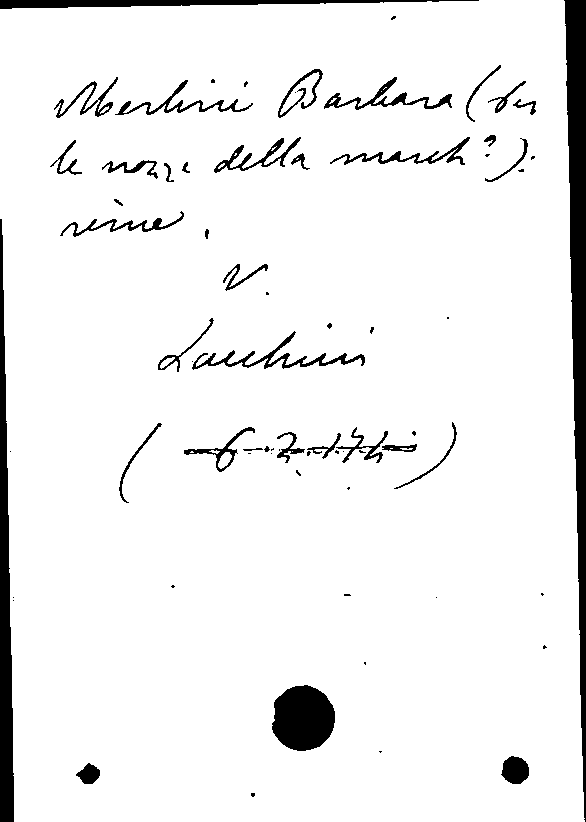 Merlini Barbara (per
le nozze della march?):
rime.
V.
Zacchini
( 6.2.174 )